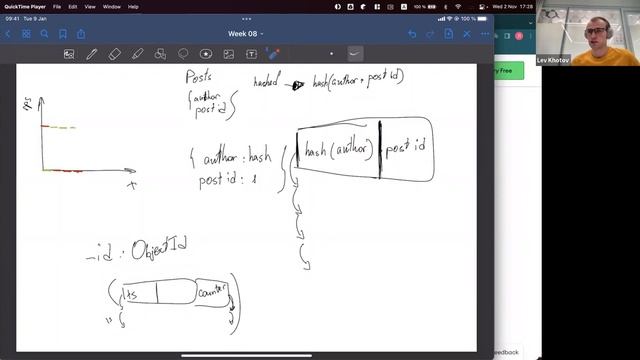 QuickTime Player File Edit View Window Help
100 % Wed 2 Nov 17:28
09:41 Tue 9 Jan
100 %
Week 08
Posts
{ author
post id }
hashed → hash(author + post id)
{ author : hash
post id : 1 }
hash (author) post id
x
_id : ObjectId
ts counter
Lev Khotov
ry Free